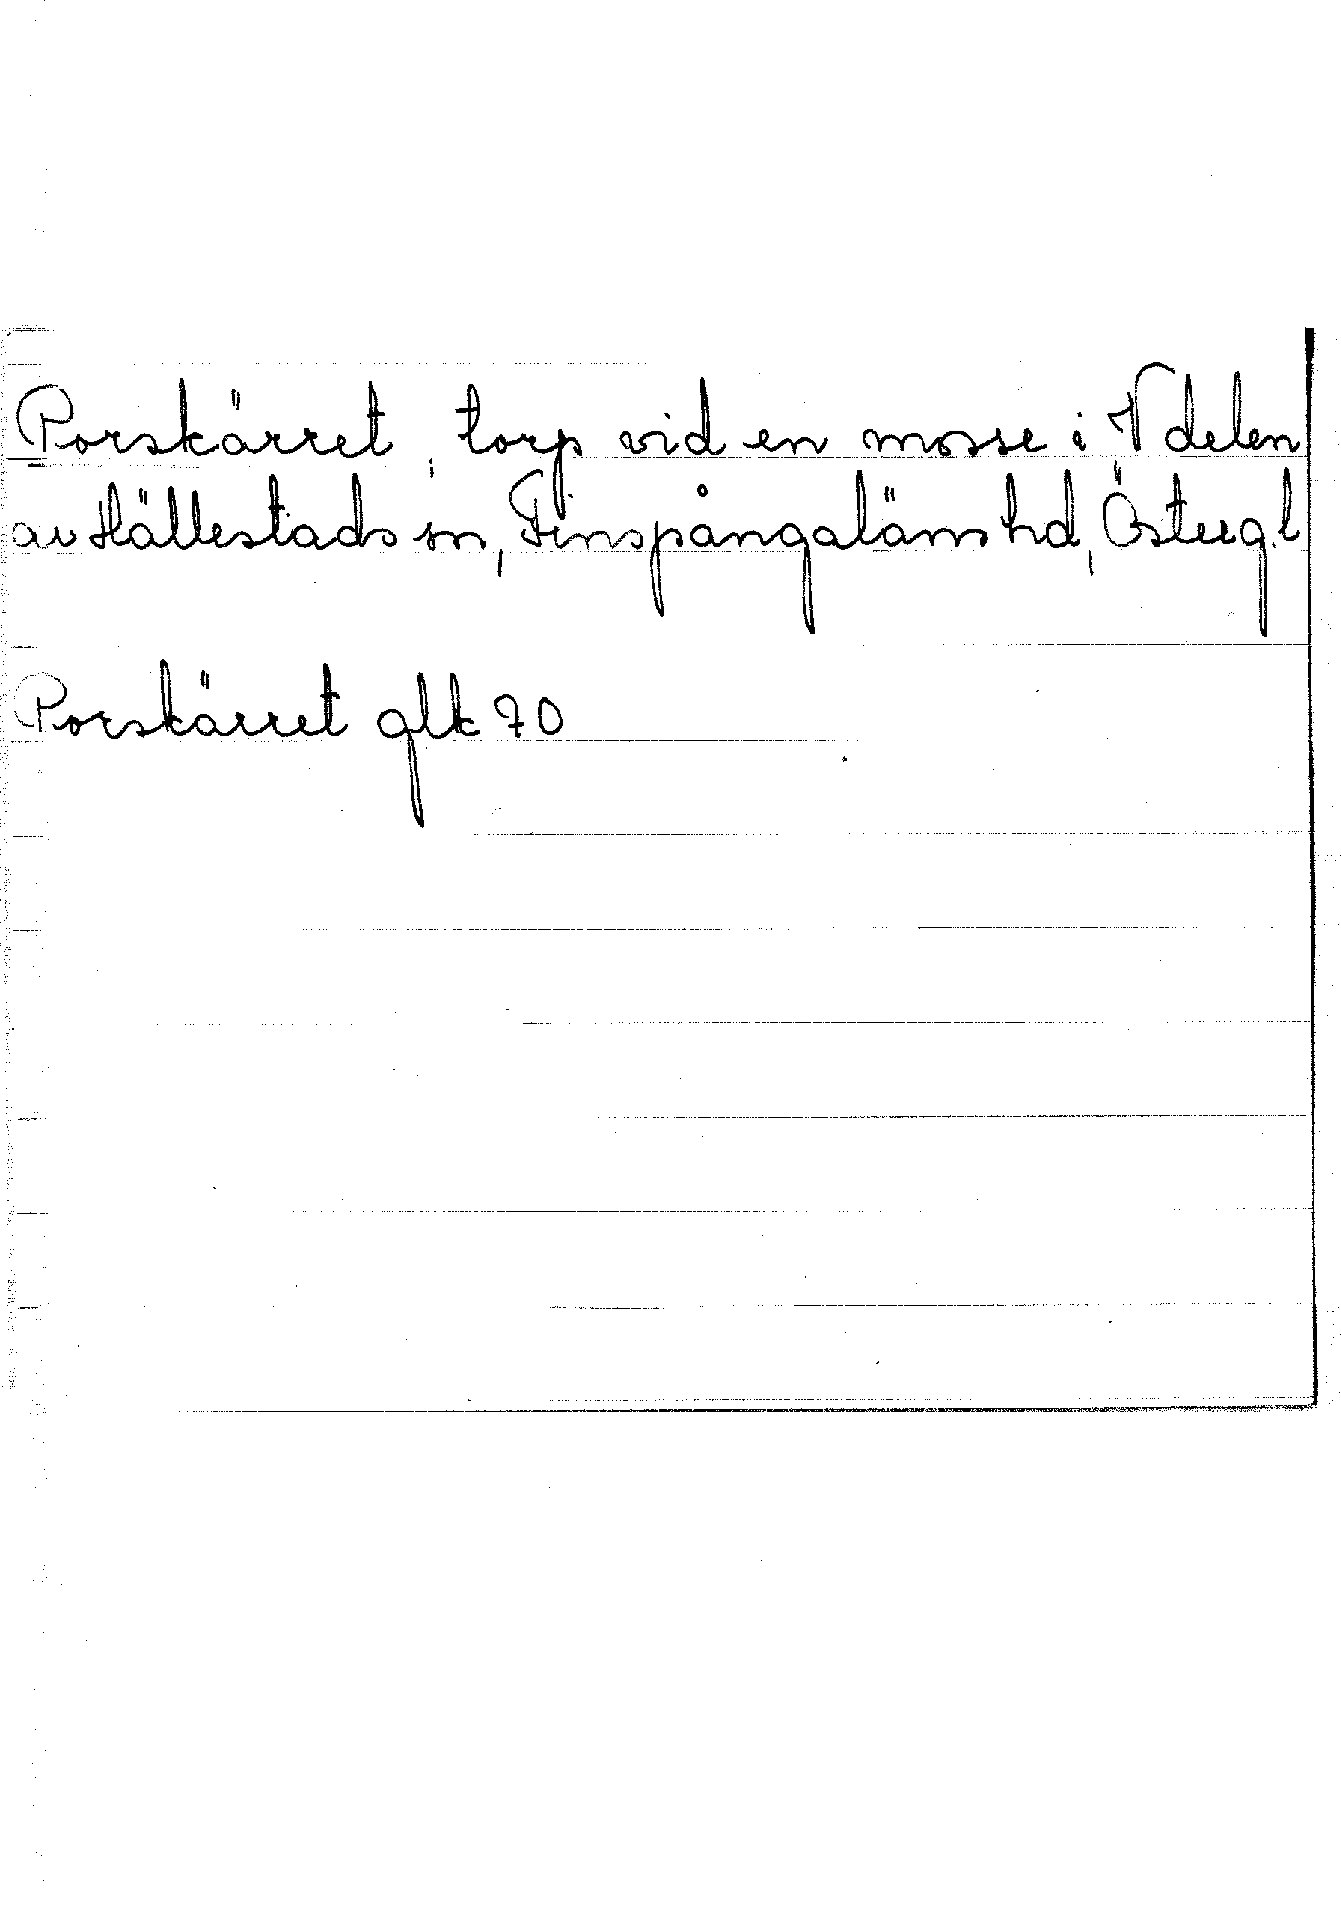 Porskärret, torp vid en mosse i V delen
av Hällestads sn, Finspångaläns hd, Östergl
Porskärret glk 70